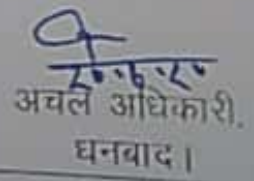 अचल अधिकारी.
धनबाद।